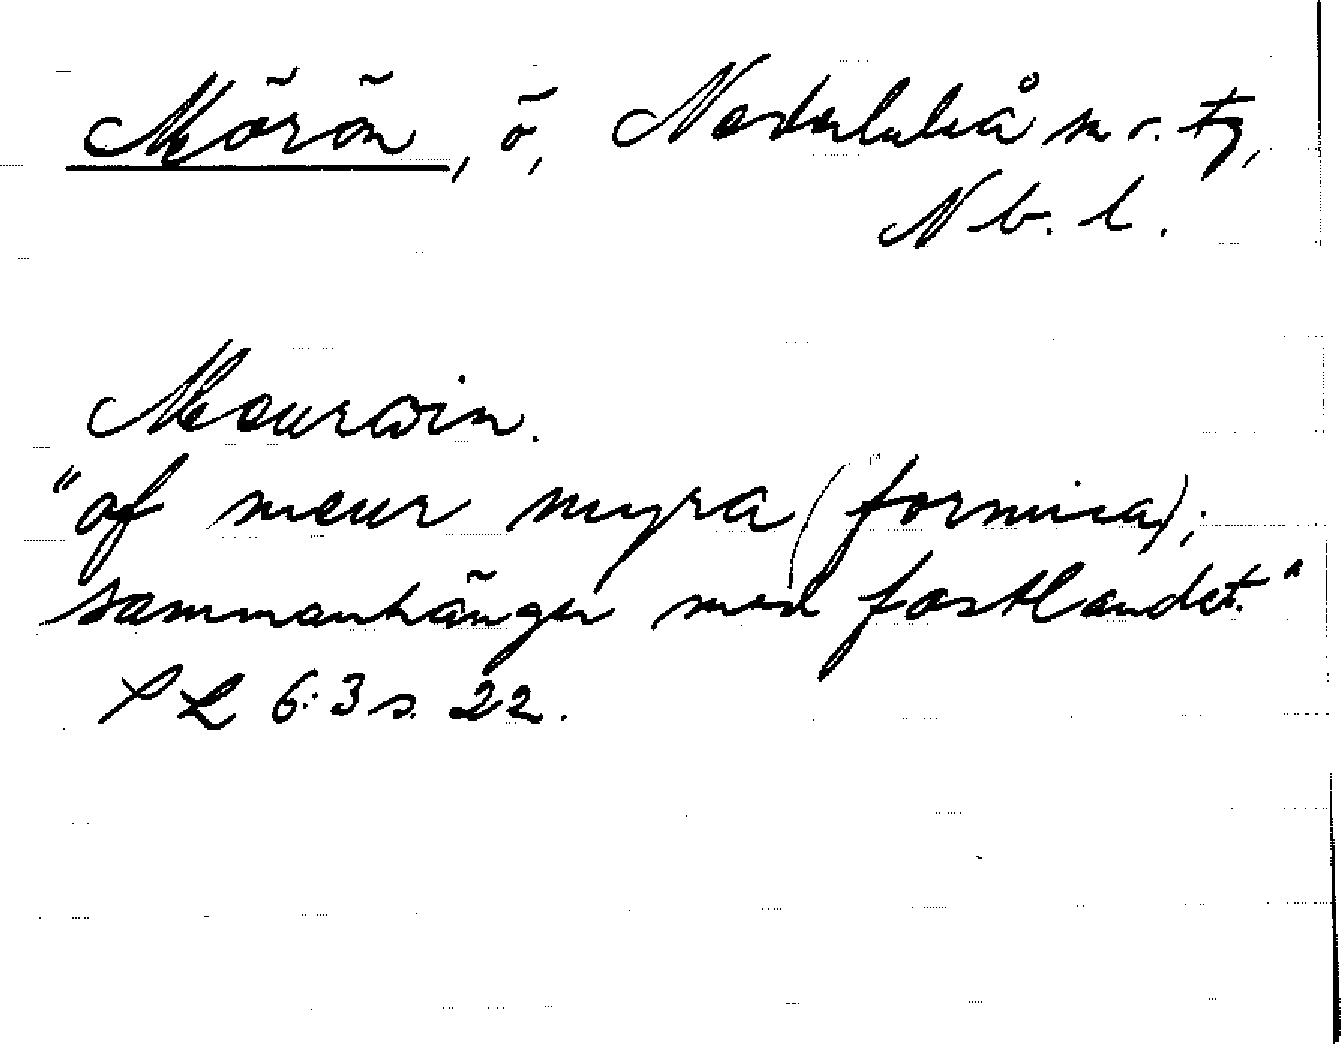 Mörön, ö, Nederluleå sn o. tg,
Nb. l.
Meuröin.
"af meur myra (formica);
sammanhänger med fastlandet."
PL 6:3 s. 22.